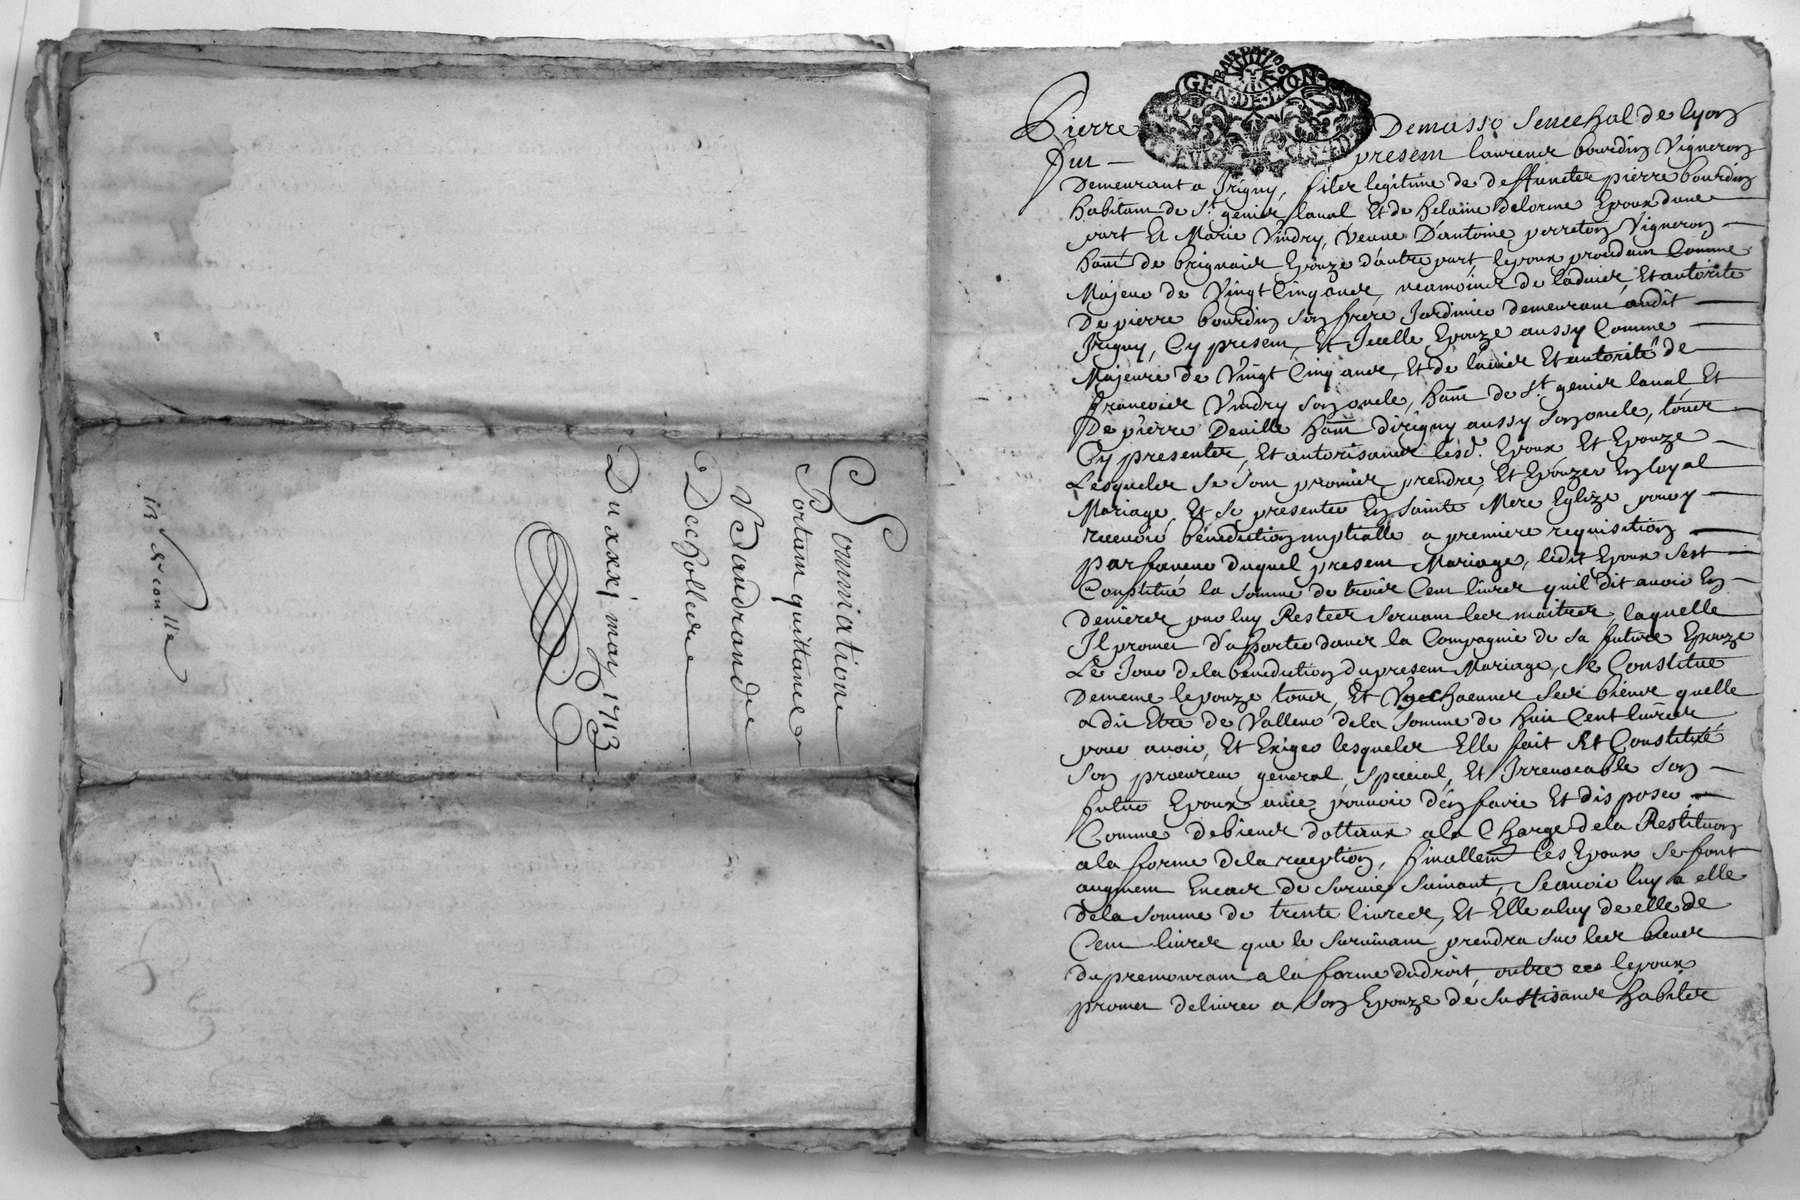 Sommations
Portant quittance
Baudrand
Decholliere
Du xxxj may 1713
GEN DE LYON
Pierre Demasso Senechal de lyon
fut present laurence bourdin Vigneron
Demeurant a Irigny, filez legitime de deffunctez pierre bourdin
habitant de St. geniez laval Et de helaine delorme Epoux dune
part Et Marie Vindry, Veuve D'antoine perreton Vigneron
hañt de brignaiz Epouze d'autre part lepoux procedant Comme
Majeur de Vingt Cinq ancz, neamoincz de ladvicz, Et autorité
De pierre bourdin son frere Jardinier demeurant audit
Irigny, Cy present, Et Icelle Epouze aussy Comme
Majeure de Vingt Cinq ancz, Et de ladvicz Et autorité de
francoicz Vindry son oncle, hañt de St. geniez laval, Et
De pierre Deville hañt d'irigny aussy son oncle, toucz
Cy presentcz, Et autorisancz lesd. Epoux Et Epouze
Lesquelcz se sont promicz prendre, Et Epouzer En loyal
Mariage, Et se presenter En Sainte Mere Eglize pour y
recevoir bénédiction nuptialle a premiere requisition
par faveur duquel present Mariage, ledit Epoux s'est
Constitué la somme de troicz Cent livrez quil dit avoir En
denierez par luy Restez servant lez maitrez, laquelle
Il promet d'aporter dancz la Compagnie de sa future Epouze
Le Jour de la benediction du present Mariage, Se Constitue
De meme lepouze toucz, Et Vgchacunez Sez biencz quelle
a dit Etre de Valleur de la somme de huit Cent livrez
pour avoir, Et Exiger lesquelcz Elle fait Et Constitue
Son procureur general, special, Et Irrevocable son
futur Epoux avec pouvoir d'en faire Et disposer
Comme de biencz dottaux a la Charge de la Restitution
a la forme de la reception, finallemt les Epoux se font
augment En cas de survie suivant, Scavoir luy a elle
de la somme de trente livrez, Et Elle a luy de elle de
Cent livrez que le survivant prendra sur lez biencz
du premourant a la forme du droit, outre ces lepoux
promet delivrer a son Epouze de suffisancz habitcz